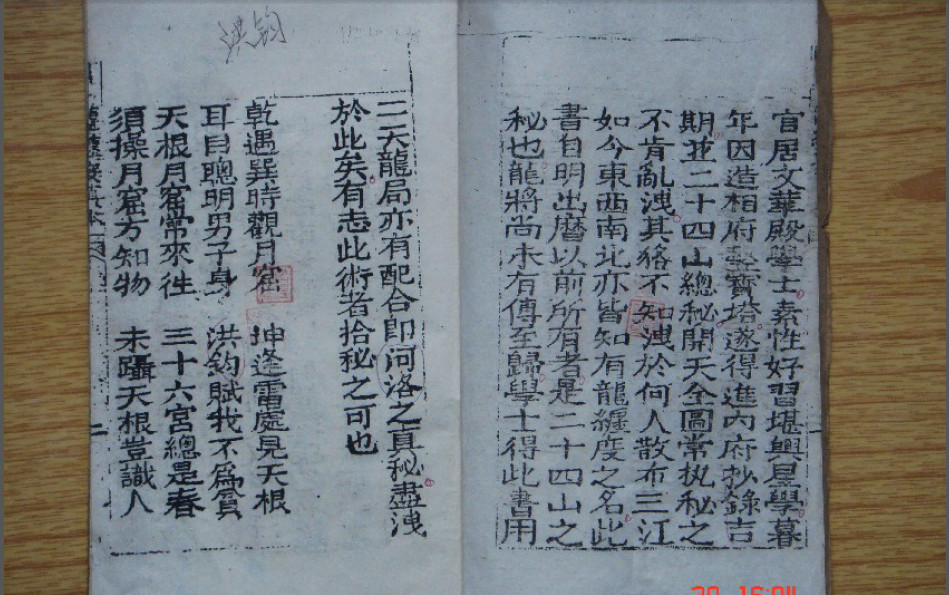 官居文華殿學士素性好習堪輿星學暮
年因造相府寶塔遂得進內府抄錄吉
期並二十四山總秘開天全圖常执秘之
不肯亂洩其不知洩於何人散布三江
如今東西南北亦皆知有龍纏度之名此
書自明出曆以前所有者是二十四山之
秘也龍將尚未有傳至歸學士得此書用
洪钧
二天龍局亦有配合即河洛之真秘盡洩
於此矣有志此術者拾秘之可也
乾遇巽時觀月窟 坤逢電處見天根
耳目聰明男子身 洪鈞賦我不爲貧
天根月窟常來往 三十六宮總是春
須操月窟方知物 未躡天根豈識人
二